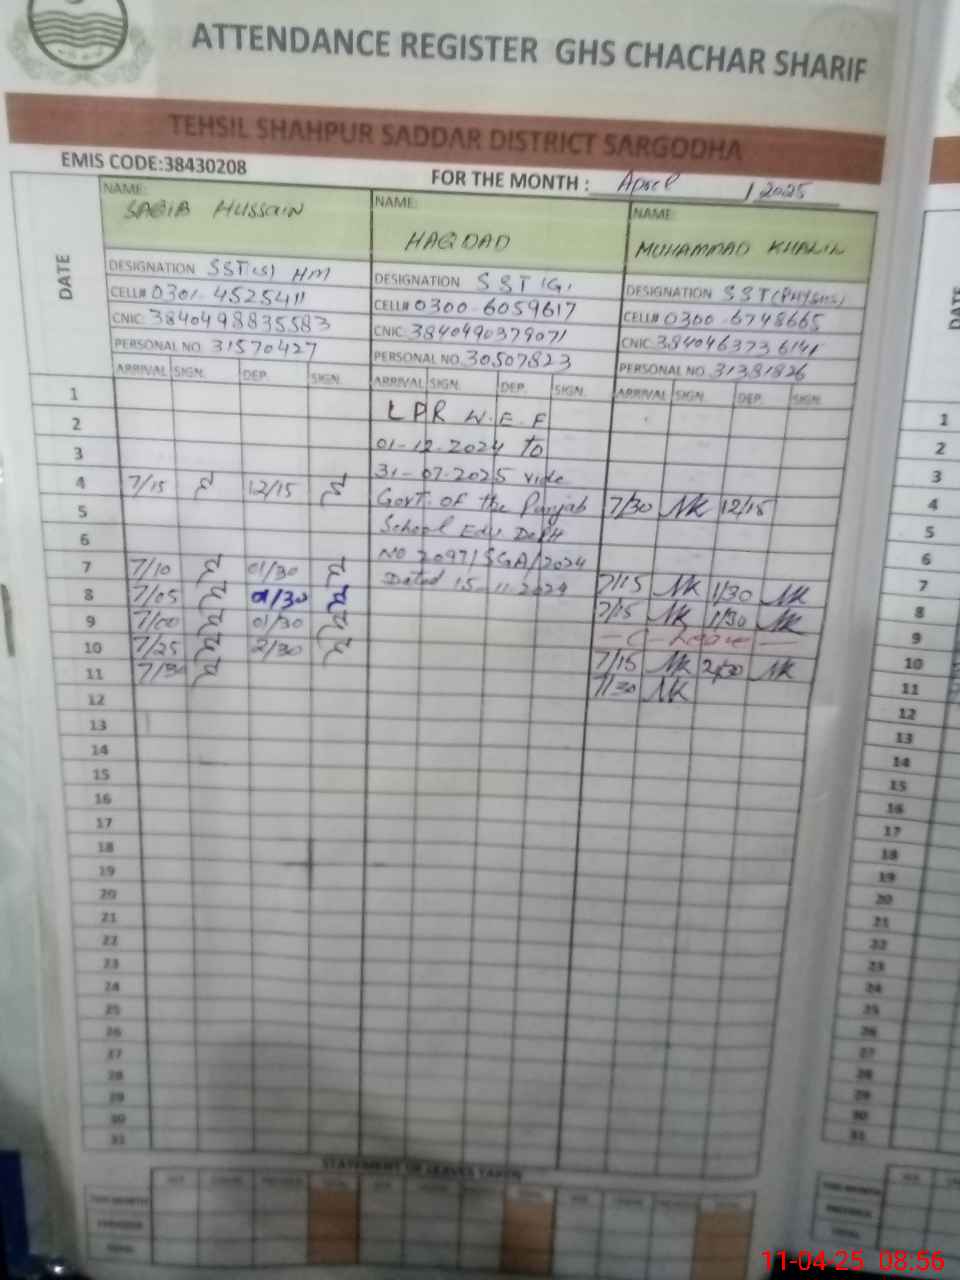 ATTENDANCE REGISTER GHS CHACHAR SHARIF
TEHSIL SHAHPUR SADDAR DISTRICT SARGODHA
EMIS CODE:38430208
FOR THE MONTH : April / 2025
DATE
NAME: SAQIB HUSSAIN
NAME: HAQ DAD
NAME: MUHAMMAD KHALIL
DESIGNATION SST(S) HM
DESIGNATION SST (G)
DESIGNATION SST(PHYSICS)
CELL# 0301-4525411
CELL# 0300-6059617
CELL# 0300-6748665
CNIC: 3840498835583
CNIC: 3840490379071
CNIC: 3840463736141
PERSONAL NO. 31570427
PERSONAL NO. 30507823
PERSONAL NO. 31381826
ARRIVAL SIGN. DEP. SIGN. ARRIVAL SIGN. DEP. SIGN. ARRIVAL SIGN. DEP. SIGN.
1 LPR W.E.F 1
2 01-12-2024 to 2
3 31-07-2025 vide 3
4 7/15 12/15 Govt. of the Punjab 7/30 MK 12/15 4
5 School Edu Deptt 5
6 NO 2097/SGA/2024 6
7 7/10 01/30 Dated 15-11-2024 7/15 MK 1/30 MK 7
8 7/05 01/30 7/15 MK 1/30 MK 8
9 7/00 01/30 — C - Leave — 9
10 7/25 2/30 7/15 MK 2/30 MK 10
11 7/30 7/30 MK 11
12 12
13 13
14 14
15 15
16 16
17 17
18 18
19 19
20 20
21 21
22 22
23 23
24 24
25 25
26 26
27 27
28 28
29 29
30 30
31 31
STATEMENT OF LEAVES TAKEN
THIS MONTH
PREVIOUS
TOTAL
11-04-25 08:56